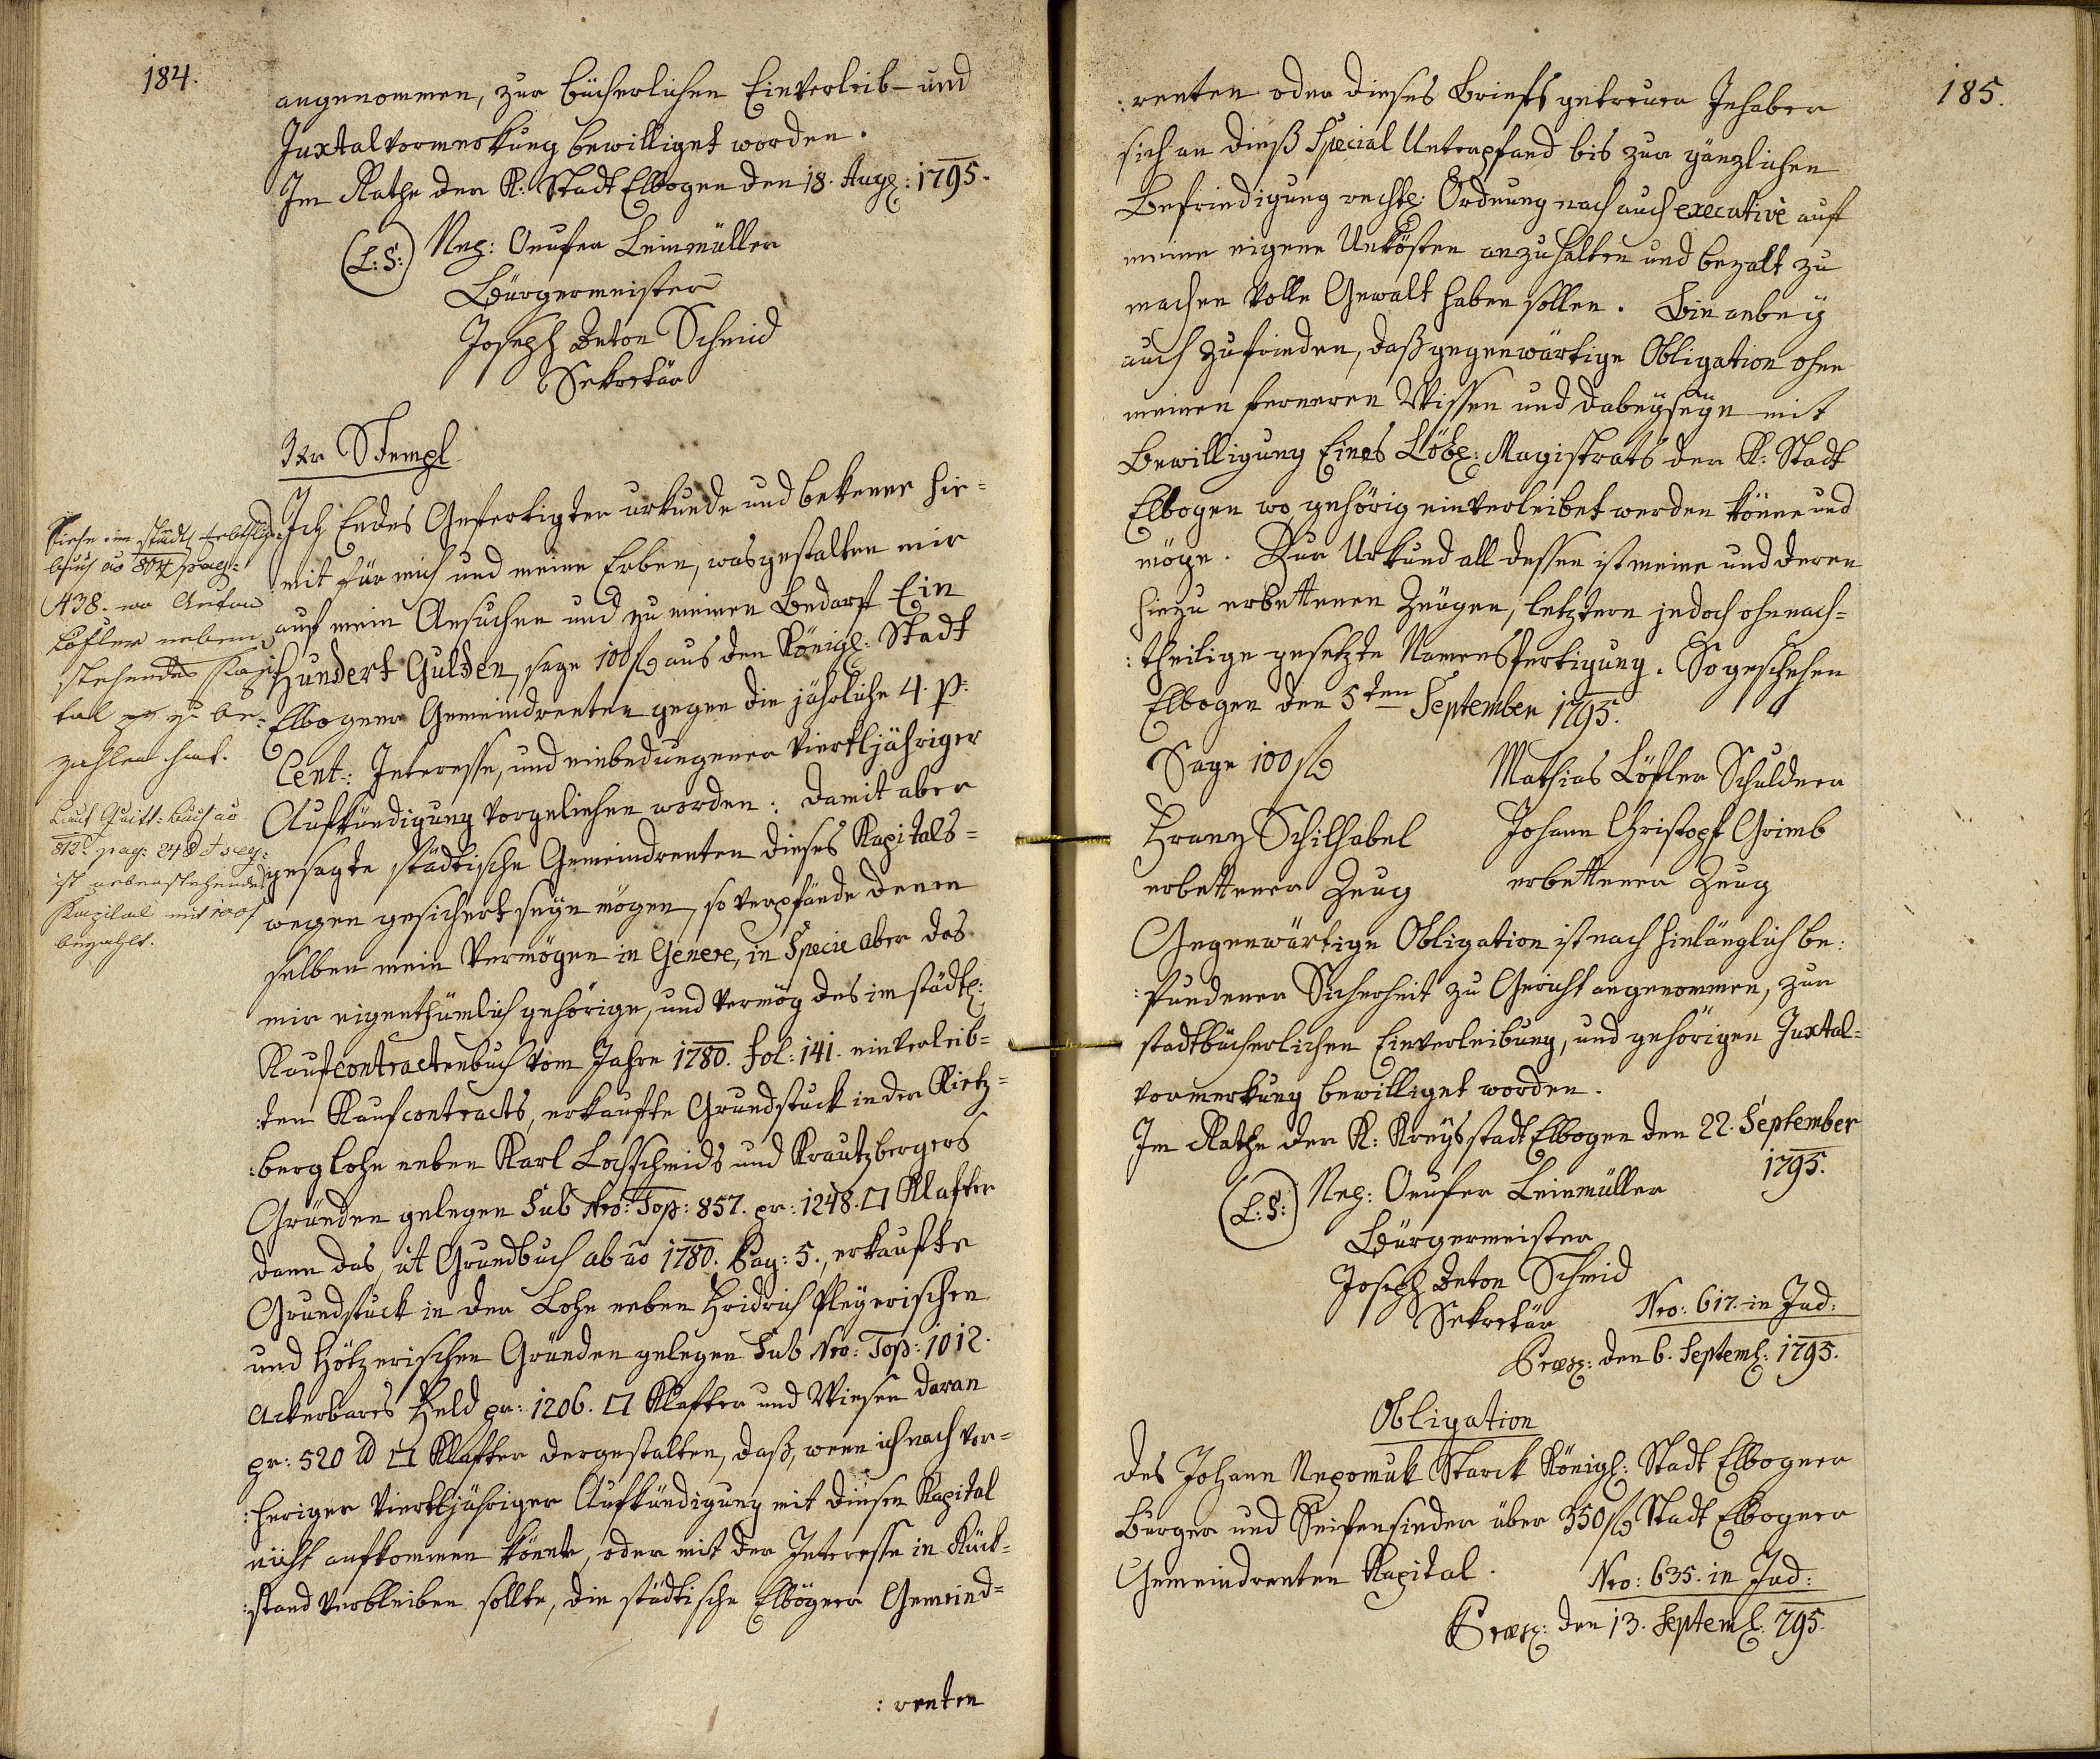 184.
angenommen, zur bücherlichen Einverleib- und
Juxtalvormerkung bewilliget worden.
Im Rathe der K: Stadt Elbogen den 18. Aug: 1795.
(L: S:) Nep: Leinmüller
Bürgermeister
Joseph Anton Schmid
Sekretär
3kr Stempl
Ich Endes Gefertigter urkunde und bekenne hie=
mit für mich und meine Erben, wasgestalten mir
auf mein Ansuchen und zu meinen Bedarf Ein
Hundert Gulden, sage 100 f aus den Königl: Stadt
Elbogner Gemeindrenten gegen die jährliche 4. p:
Cent: Interesse, und einbedungener viertljähriger
Aufkündigung vorgeliehen worden: damit aber
gesagte städtische Gemeindrenten dieses Kapitals=
wegen gesichert seyn mögen, so verpfände denen
selben mein Vermögen in Genere, in Specie aber das
mir eigenthümlich gehörige, und vermög des im städt:
Kaufcontractenbuch vom Jahre 1780. fol: 141. einverleib=
:ten Kaufcontracts, erkaufte Grundstuck in der Kietz=
:berglohe neben Karl Lochschmids und Krautzbergers
Gründen gelegen Sub Nro: Top: 857. pr: 1248. □ Klafter
dann das, ut Grundbuch ab ao 1780. Pag: 5., erkaufte
Grundstuck in der Lohe neben Fridrich Pleyerischen
und Hötzerischen Gründen gelegen Sub Nro: Top: 1012.
Ackerbares Feld pr: 1206. □ Klafter und Wiesen daran
pr: 520 □ Klafter dergestalten, daß, wenn ich nach vor=
:heriger viertljähriger Aufkündigung mit diesen Kapital
nicht aufkommen könnte, oder mit der Interesse in Rück=
:stand verbleiben sollte, die städtische Elbögner Gemeind=
:renten
Siehe im städt:
buch ao 804 pag:
438. wo Anton
Löfler neben
stehendes Kapi
tal zu be=
zahlen hat.
Laut Quitt: buch ao
812. pag: 248 et seq:
ist nebenstehendes
Kapital mit 100 f
bezahlt.
185.
:renten oder dieses Briefs getreuer Inhaber
sich an dieß Special Unterpfand bis zur gänzlichen
Befriedigung rechtl: Ordnung nach auch executive auf
meine eigene Unkösten anzuhalten und bezalt zu
machen volle Gewalt haben sollen. Bin anbey
auch zufrieden, daß gegenwärtige Obligation ohne
meinen ferneren Wissen und dabeyseyn mit
Bewilligung Eines Löbl: Magistrats der K: Stadt
Elbogen wo gehörig einverleibet werden könne und
möge. Zur Urkund all dessen ist meine und deren
hiezu erbettenen Zeugen, letztern jedoch ohnnach=
:theilige gesetzte Namensfertigung. So geschehen
Elbogen den 5ten September 1795.
Sage 100 f
Mathias Löfler Schuldner
Franz Schilhabel
Johann Christoph Grimb
erbettener Zeug
erbettener Zeug
Gegenwärtige Obligation ist nach hinlänglich be:
:fundener Sicherheit zu Gericht angenommen, zur
stadtbücherlichen Einverleibung, und gehörigen Juxtal=
vormerkung bewilliget worden.
Im Rathe der K: Kreysstadt Elbogen den 22. September
1795.
(L: S:) Nep: Leinmüller
Bürgermeister
Joseph Anton Schmid
Sekretär
Nro: 617. in Jud:
Præs: den 6. Septemb: 1795.
Obligation
des Johann Nepomuk Starck Königl: Stadt Elbogner
Burger und Seifensieder über 350 f Stadt Elbogner
Gemeindrenten Kapital.
Nro: 635. in Jud:
Præs: den 13. Septemb: 795.